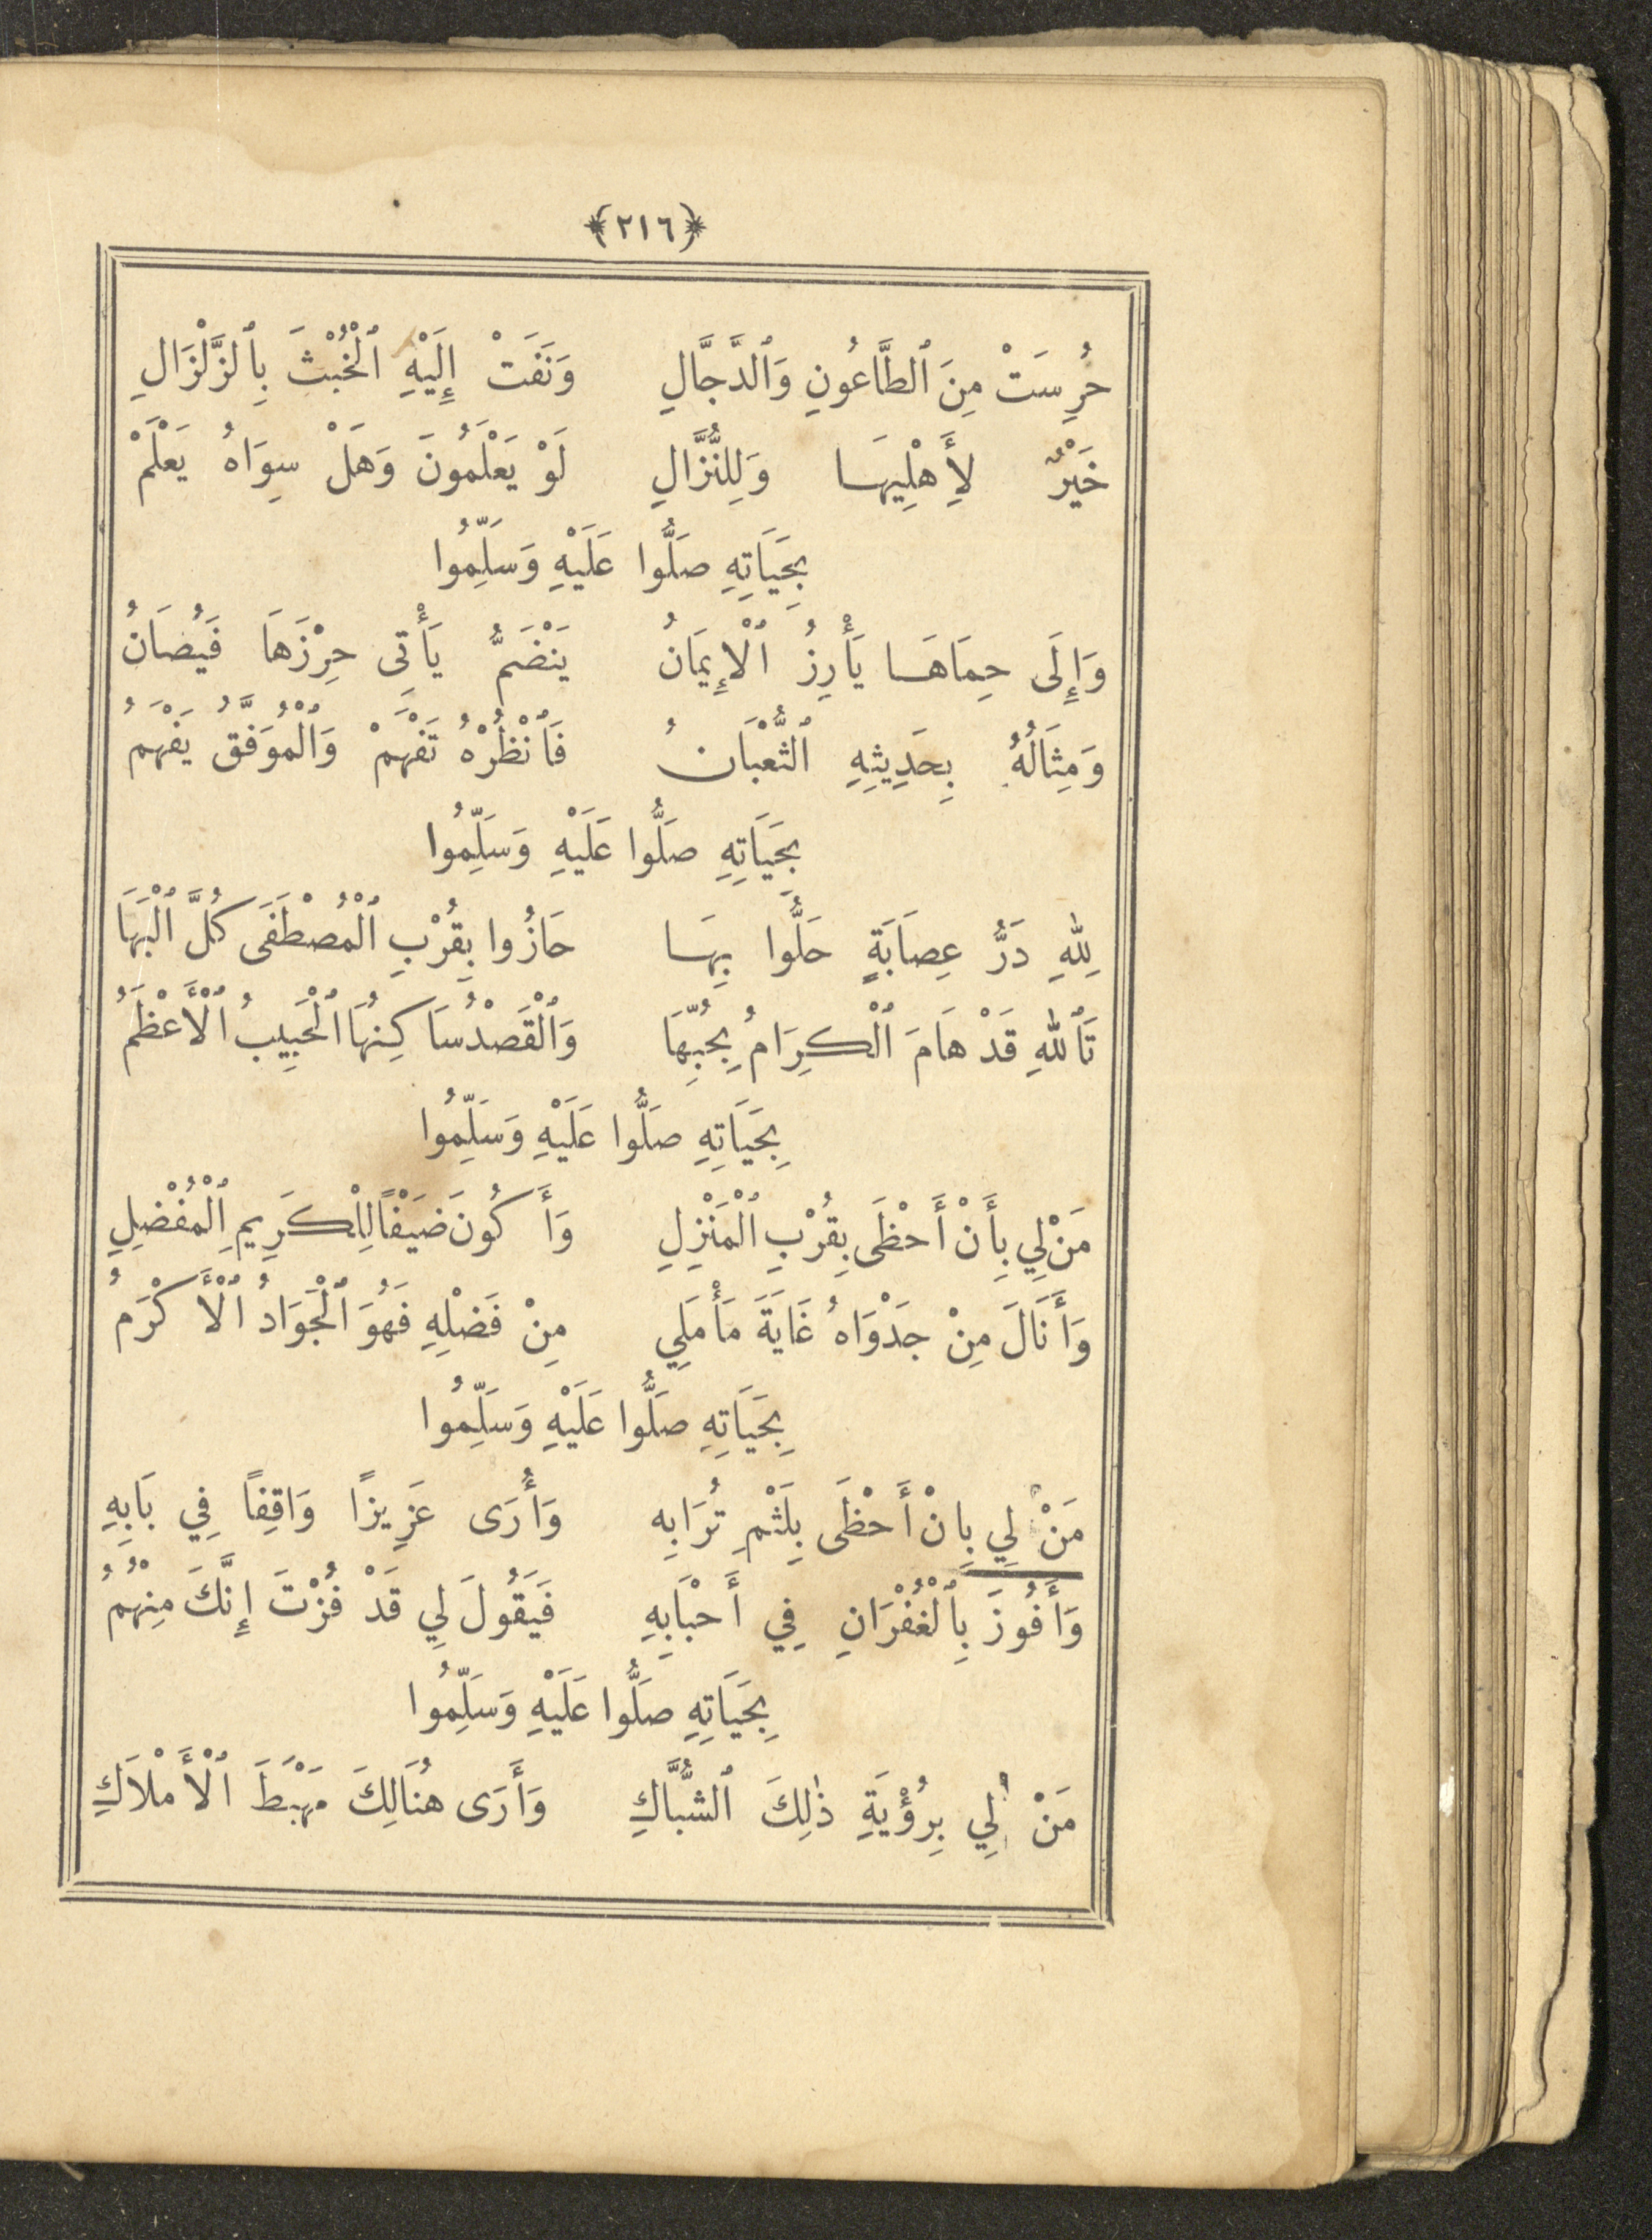 ﴿٢١٦﴾
حُرِسَتْ مِنَ ٱلطَّاعُونِ وَٱلدَّجَّالِ وَنَفَتْ إِلَيْهِ ٱلْخُبْثَ بِٱلزَّلْزَالِ
خَيْرٌ لِأَهْلِيهَا وَلِلنُّزَّالِ لَوْ يَعْلَمُونَ وَهَلْ سِوَاهُ يَعْلَمْ
بِحَيَاتِهِ صَلُّوا عَلَيْهِ وَسَلِّمُوا
وَإِلَى حِمَاهَا يَأْرِزُ ٱلْإِيمَانُ يَنْضَمُّ يَأْتِي حِرْزَهَا فَيُصَانُ
وَمِثَالُهُ بِحَدِيثِهِ ٱلثُّعْبَانُ فَٱنْظُرْهُ تَفْهَمْ وَٱلْمُوَفَّقُ يَفْهَمُ
بِحَيَاتِهِ صَلُّوا عَلَيْهِ وَسَلِّمُوا
لِلّٰهِ دَرُّ عِصَابَةٍ حَلُّوا بِهَا حَازُوا بِقُرْبِ ٱلْمُصْطَفَى كُلَّ ٱلْبَهَا
تَٱللهِ قَدْ هَامَ ٱلْكِرَامُ بِحُبِّهَا وَٱلْقَصْدُ سَاكِنُهَا ٱلْحَبِيبُ ٱلْأَعْظَمُ
بِحَيَاتِهِ صَلُّوا عَلَيْهِ وَسَلِّمُوا
مَنْ لِي بِأَنْ أَحْظَى بِقُرْبِ ٱلْمَنْزِلِ وَأَكُونَ ضَيْفًا لِلْكَرِيمِ ٱلْمُفْضِلِ
وَأَنَالَ مِنْ جَدْوَاهُ غَايَةَ مَأْمَلِي مِنْ فَضْلِهِ فَهُوَ ٱلْجَوَادُ ٱلْأَكْرَمُ
بِحَيَاتِهِ صَلُّوا عَلَيْهِ وَسَلِّمُوا
مَنْ لِي بِانْ أَحْظَى بِلَثْمِ تُرَابِهِ وَأُرَى عَزِيزًا وَاقِفًا فِي بَابِهِ
وَأَفُوزَ بِٱلْغُفْرَانِ فِي أَحْبَابِهِ فَيَقُولَ لِي قَدْ فُزْتَ إِنَّكَ مِنْهُمُ
بِحَيَاتِهِ صَلُّوا عَلَيْهِ وَسَلِّمُوا
مَنْ لِي بِرُؤْيَةِ ذٰلِكَ ٱلشُّبَّاكِ وَأَرَى هُنَالِكَ مَهْبَطَ ٱلْأَمْلَاكِ